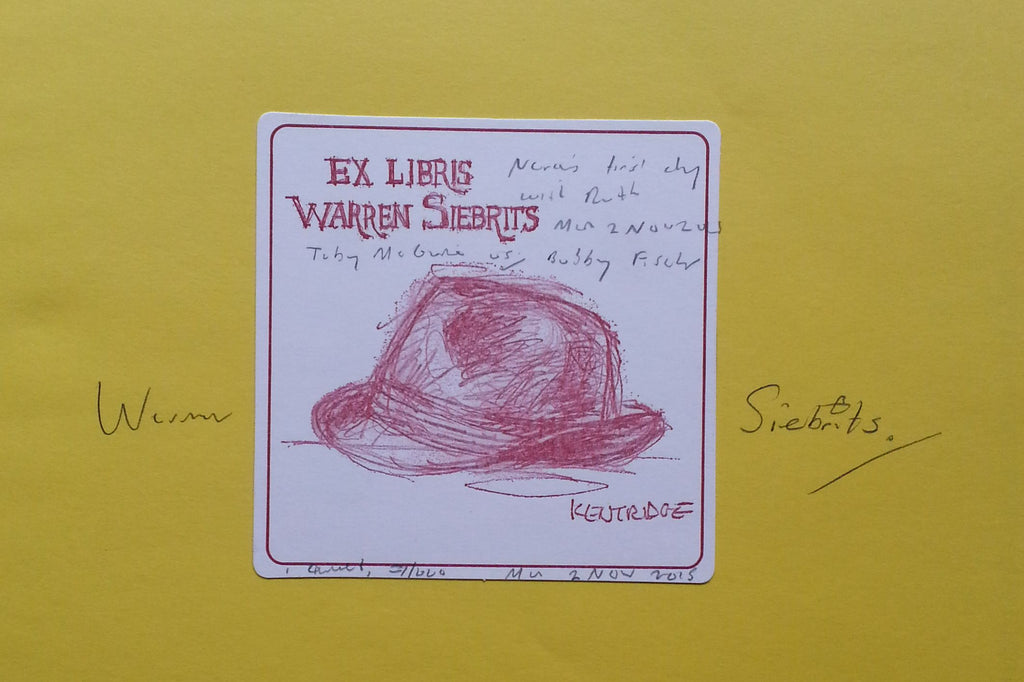 EX LIBRIS
WARREN SIEBRITS
first day
with Ruth
Mon 2 Nov 2015
Toby McGuire vs Bobby Fischer
Warren
Siebrits.
KENTRIDGE
Mon 2 NOV 2015